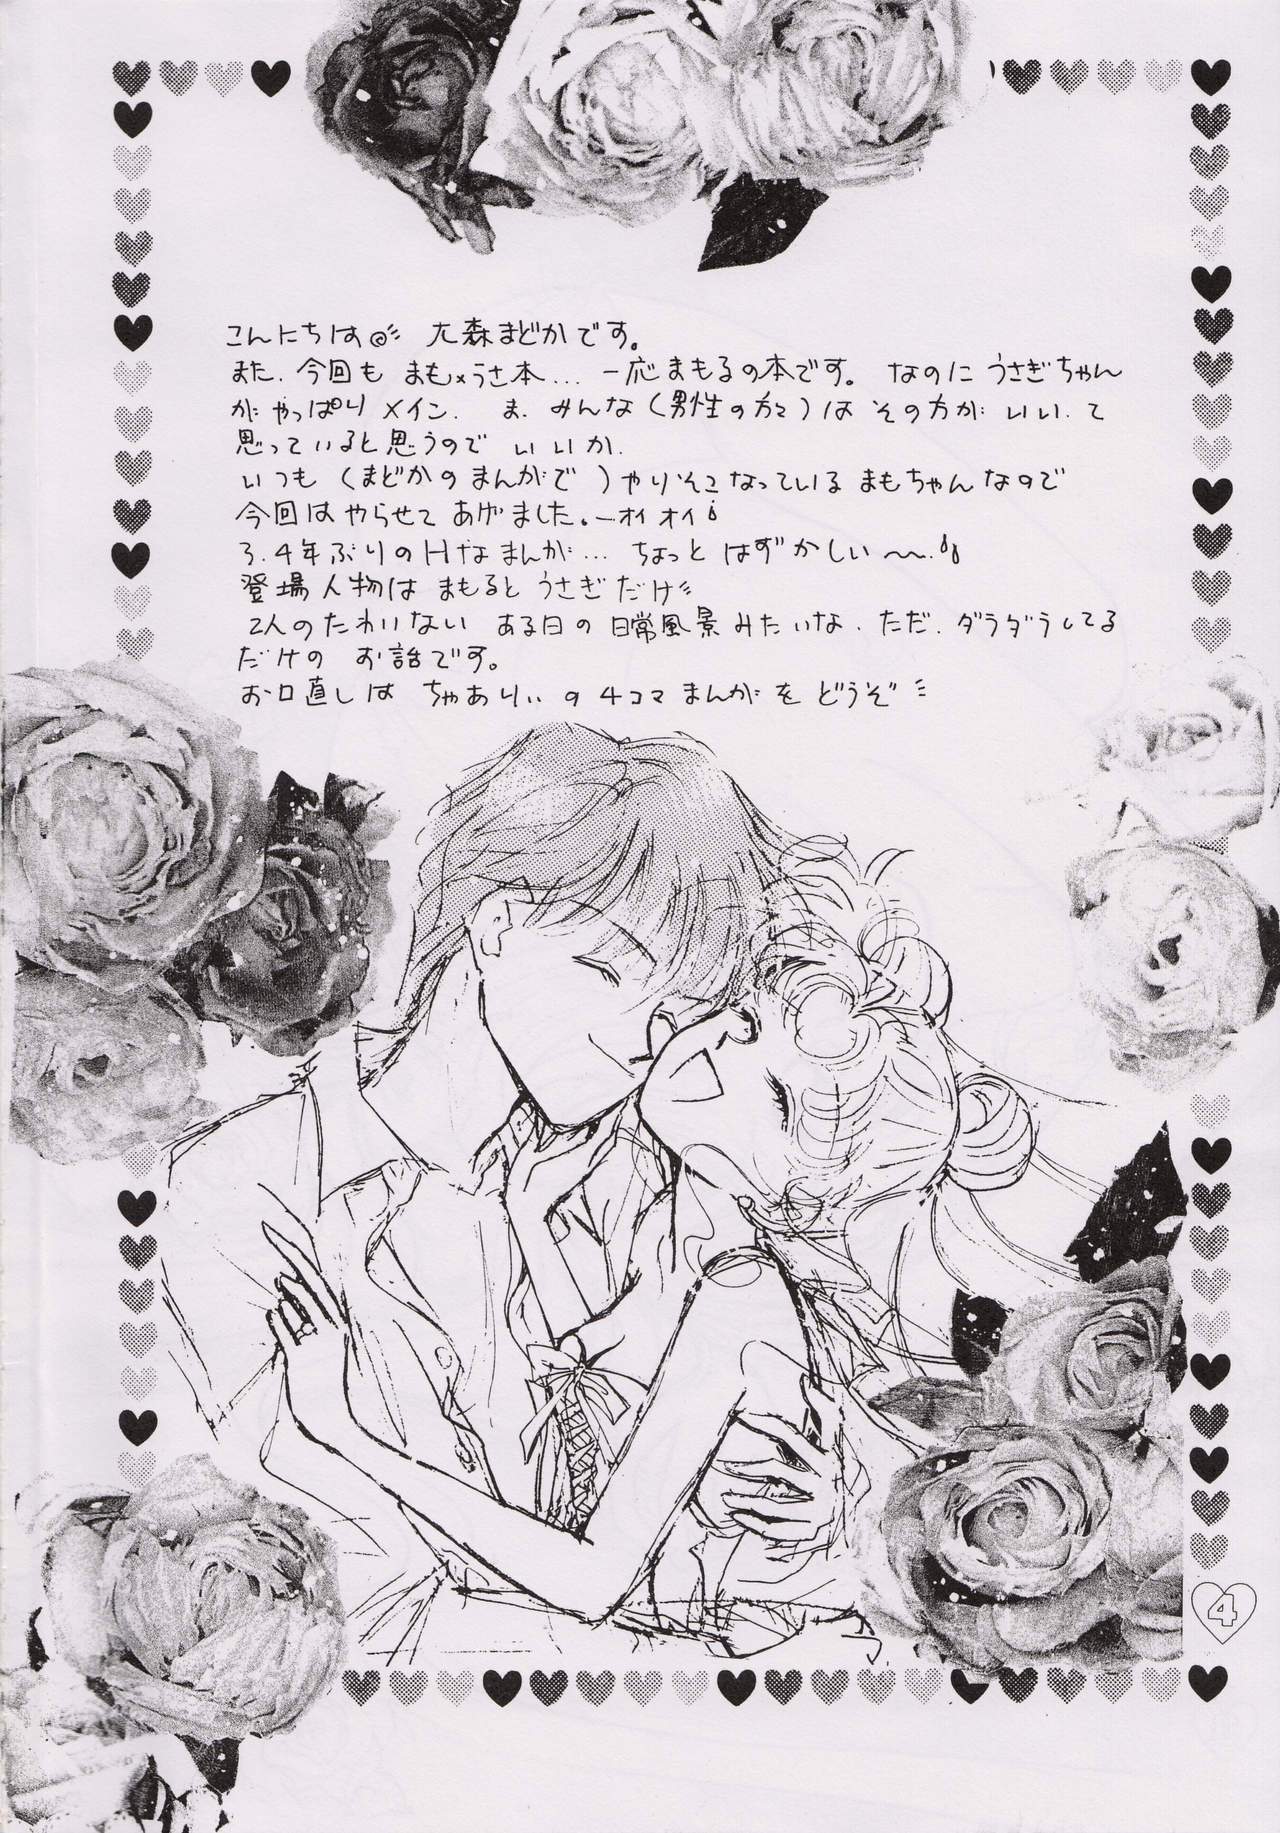 こんにちは 大森まどかです。
また、今回も まも×うさ本… 一応まもるの本です。 なのに うさぎちゃん
がやっぱりメイン、 ま、みんな(男性の方々)は その方が いい、て
思っていると思うので いいか、
いつも (まどかの まんがで )やりそこなっている まもちゃんなので
今回は やらせて あげました。—オイオイ
3.4年ぶりのHなまんが… ちょっと はずかしい〜〜、
登場人物は まもると うさぎだけ
2人のたわいない ある日の 日常風景みたいな、ただ、ダラダラしてる
だけの お話です。
お口直しは ちゃありぃの4コマまんがを どうぞ
4